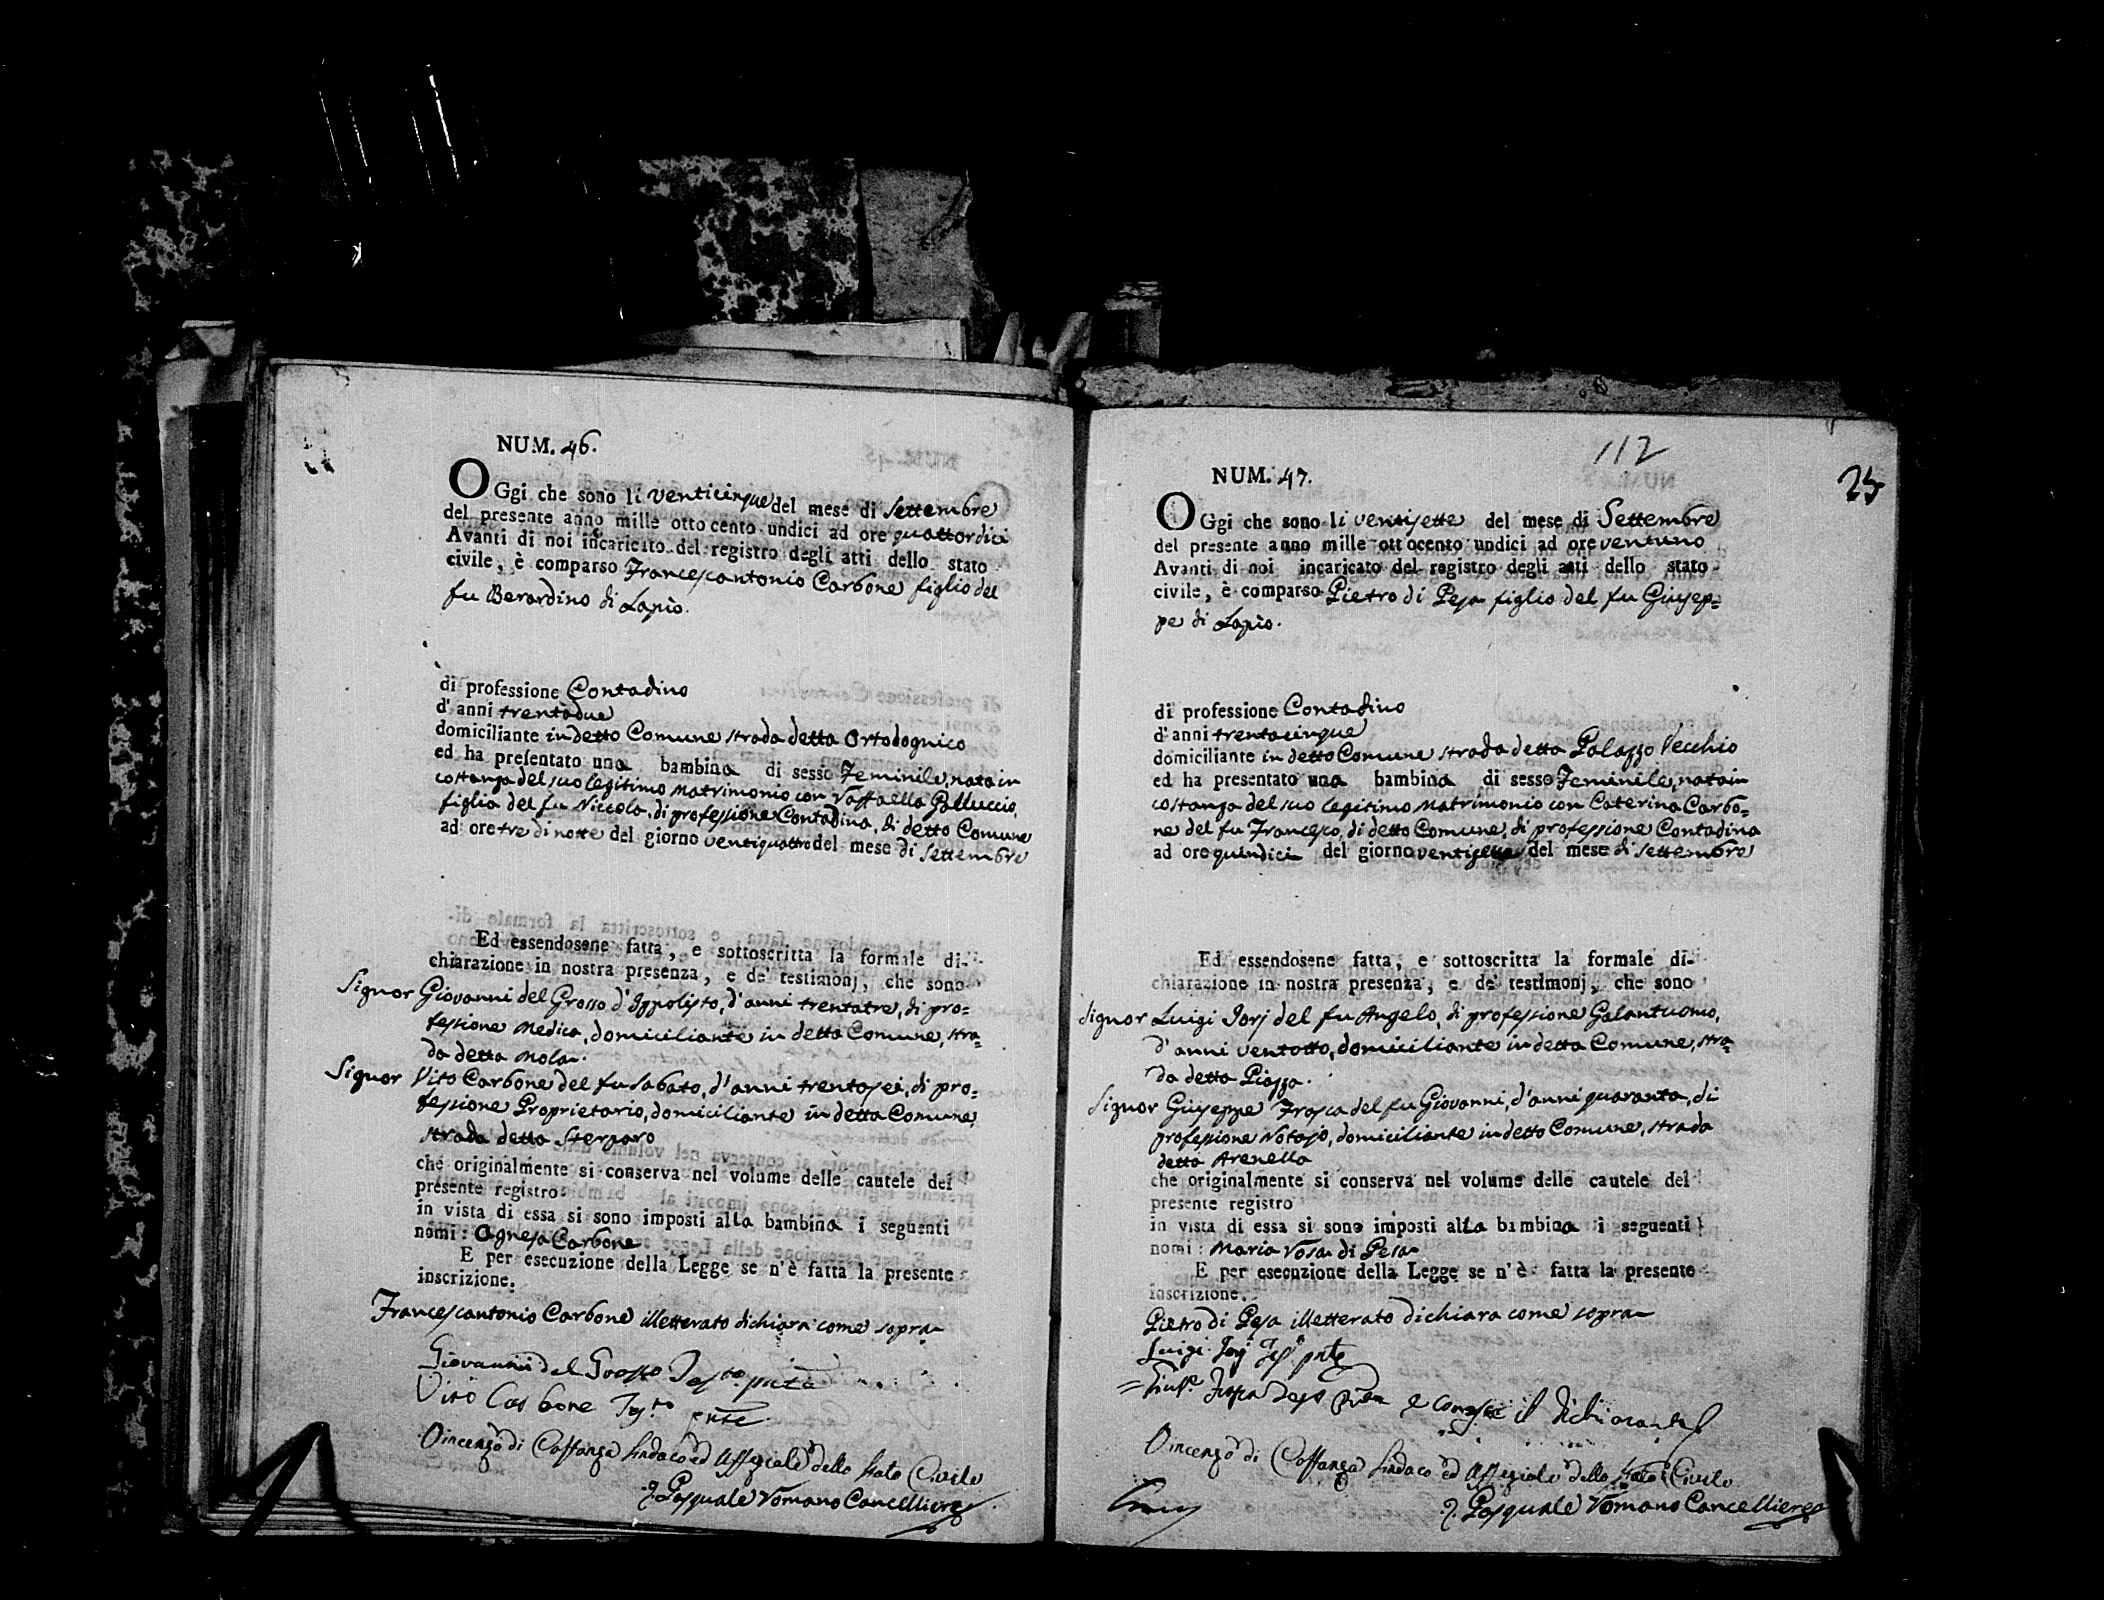 NUM. 46.
OGgi che sono li venticinque del mese di Settembre
del presente anno mille otto cento undici ad ore quattordici
Avanti di noi incaricato del registro degli atti dello stato
civile, è comparso Francescantonio Carbone figlio del
fu Berardino di Lapio.
di professione Contadino
d'anni trentadue
domiciliante in detto Comune strada detta Ortodognico
ed ha presentato una bambina di sesso Feminile, nata in
costanza del suo legitimo matrimonio con Raffaella Polluccio,
figlia del fu Niccola, di professione Contadina, di detto Comune
ad ore tre di notte del giorno ventiquattro del mese di Settembre
Ed essendosene fatta, e sottoscritta la formale di-
chiarazione in nostra presenza, e de' testimonj, che sono
Signor Giovanni del Grosso d'Ippolisto, d'anni trentatre, di pro=
fessione Medico, domiciliante in detto Comune, stra=
da detta Mola.
Signor Vito Carbone del fu Sabato, d'anni trentasei, di pro=
fessione Proprietario, domiciliante in detto Comune,
strada detta Sterparo
che originalmente si conserva nel volume delle cautele del
presente registro
in vista di essa si sono imposti alla bambina i seguenti
nomi: Agnesa Carbone
E per esecuzione della Legge se n'è fatta la presente
inscrizione.
Francescantonio Carbone illetterato dichiara come sopra
Giovanni del Grosso Testo pnte
Vito Carbone Testo pnte
Vincenzo di Coffanza Sindaco ed Uffiziale dello Stato Civile
Pasquale Romano Cancelliere
112
25
NUM. 47.
OGgi che sono li ventisette del mese di Settembre
del presente anno mille ottocento undici ad ore ventuno
Avanti di noi incaricato del registro degli atti dello stato
civile, è comparso Pietro di Pesa figlio del fu Giusep=
pe di Lapio.
di professione Contadino
d'anni trentacinque
domiciliante in detto Comune strada detta Palazzo Vecchio
ed ha presentato una bambina di sesso Feminile, nata in
costanza del suo legitimo matrimonio con Caterina Carbo=
ne del fu Francesco, di detto Comune, di professione Contadina
ad ore quindici del giorno ventisette del mese di Settembre
Ed essendosene fatta, e sottoscritta la formale di-
chiarazione in nostra presenza, e de' testimonj, che sono
Signor Luigi Iorj del fu Angelo, di professione Galantuomo,
d'anni ventotto, domiciliante in detto Comune, stra=
da detta Piazza.
Signor Giuseppe Frasca del fu Giovanni, d'anni quaranta, di
professione Notajo, domiciliante in detto Comune, strada
detta Arenella
che originalmente si conserva nel volume delle cautele del
presente registro
in vista di essa si sono imposti alla bambina i seguenti
nomi: Maria Rosa di Pesa
E per esecuzione della Legge se n'è fatta la presente
inscrizione.
Pietro di Pesa illetterato dichiara come sopra
Luigi Iorj Testo pnte
Frasca il dichiarante
Vincenzo di Coffanza Sindaco ed Uffiziale dello Stato Civile
Pasquale Romano Cancelliere